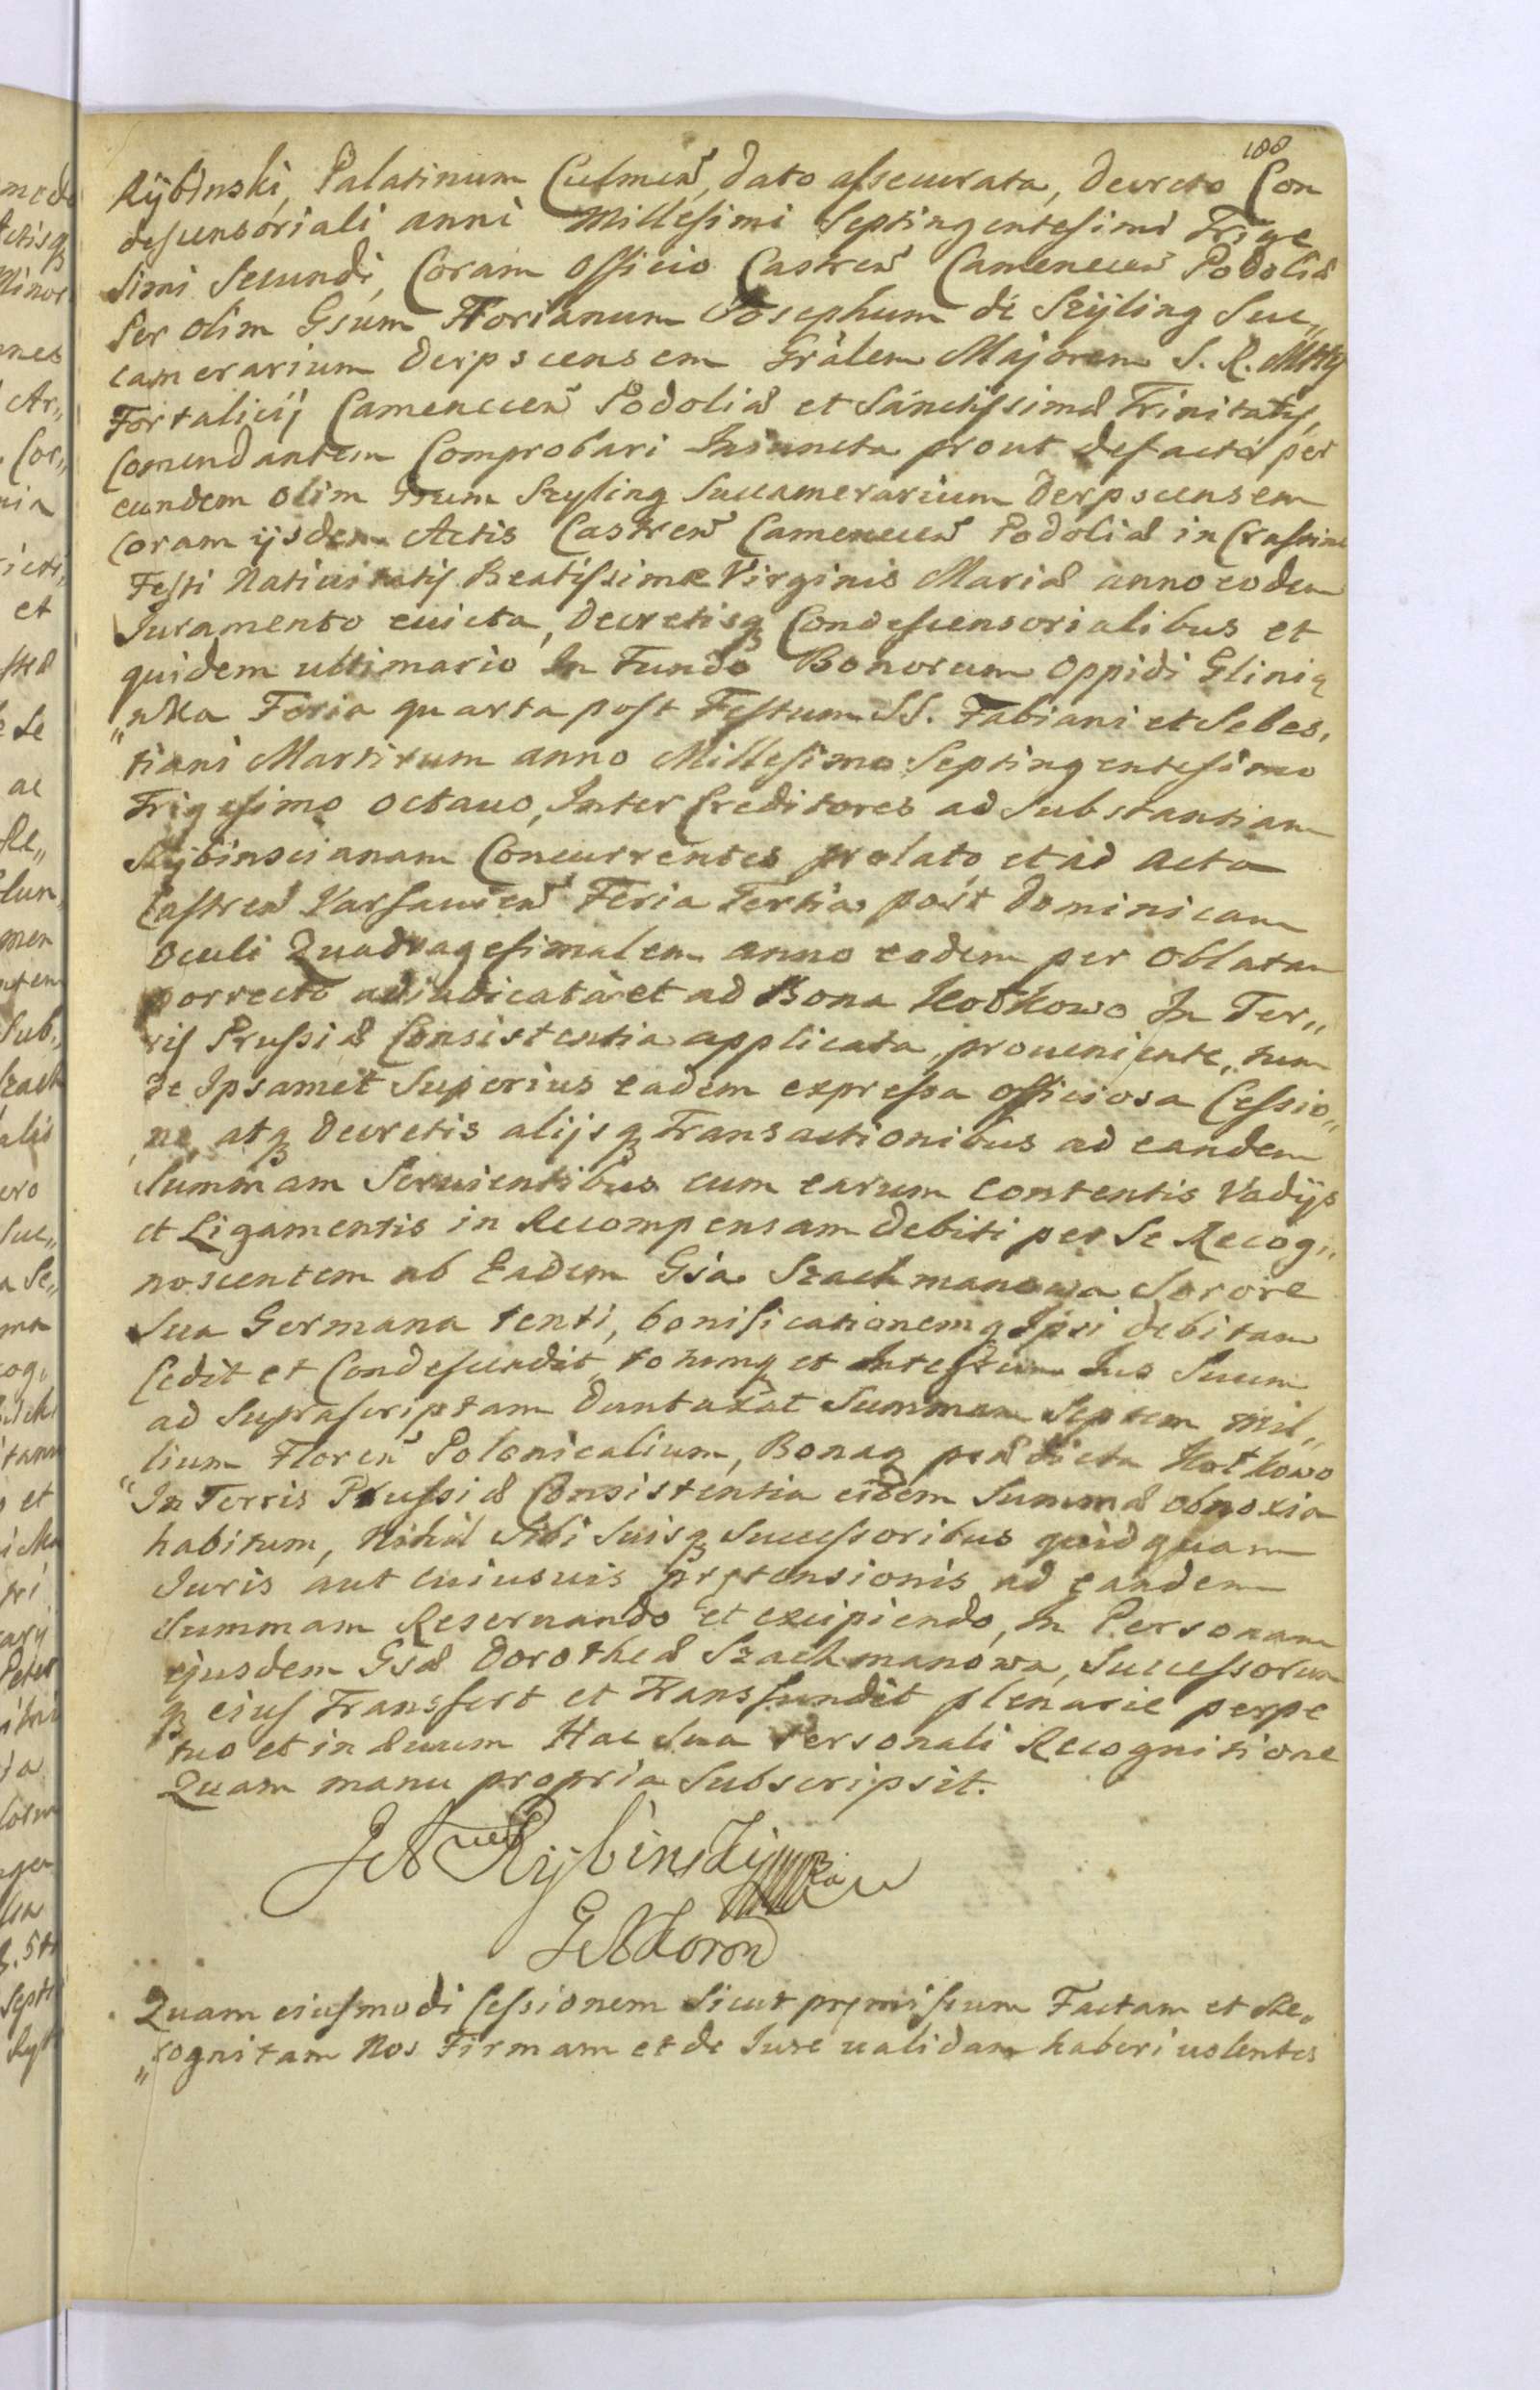 188
Rÿbinski, Palatinum Culmeñ, dato assecurata, Decreto Con
descensoriali anni Millesimi Septingentesimi Trige
simi Secundi, Coram Officio Castreñ Cameneceñ Podoliæ
Per olim Gsum Florianum Josephum de Szÿling Suc„
camerarium Derpscensem Grälem Majorem S. R. Mttis
Fortalicij Cameneceñ Podoliæ et Sanctissimæ Trinitatis,
Comendantem Comprobari Iniuncta prout defacto per
eundem olim Gsum Szyling Succamerarium Derpscensem
Coram ijsdem Actis Castreñ Cameneceñ Podoliæ in Crastino
Festi Natiuitatis Beatissimæ Virginis Mariæ anno eodem
Juramento euicta, Decretisq Condescensorialibus et
quidem ultimario In Fundo Bonorum Oppidi Glinia
„nka Feria quarta post Festum SS. Fabiani et Sebas,
tiani Martirum anno Millesimo Septingentesimo
Trigesimo octauo, Inter Creditores ad Substantiam
Rÿbinscianam Concurrentes prolato, et ad Acta
Castreñ Varsauieñ Feria Tertia post Dominicam
Oculi Quadragesimalem anno eodem per Oblatam
porrecto adiudicata et ad Bona Kotkowo In Ter„
ris Prussiæ Consistentia applicata, proueniente, tum
de Ipsamet Superius eadem expressa officiosa Cessio„
ne, atq Decretis alijsq Transactionibus ad eandem
Summam Seruientibus cum earum contentis Vadijs
et Ligamentis in Recompensam debiti per Se Recog„
noscentem ab Eadem Gsa Szachmanowa Sorore
Sua Germana tenti, bonificationemq Ipsi debitam
Cedit et Condescendit, totumq et Integrum Ius Suum
ad Suprascriptam Duntaxat Summam Septem Mil„
„lium Floreñ Polonicalium, Bonaq prædicta Kotkowo
In Terris Prussiæ Consistentia eidem Summæ obnoxia
habitum, Nihil Sibi Suisq Successoribus quidquam
Juris aut cuiusuis prætensionis ad eandem
Summam Reseruando et excipiendo, In Personam
ejusdem Gsæ Dorotheæ Szachmanowa, Successorum
q eius Transfert et Transfundit plenarie perpe
tuo et in æuum Hac Sua Personali Recognitione
Quam manu propria Subscripsit.
Rÿbinskÿ
Quam eiusmodi Cessionem Sicut præmissum Factam et Re„
„cognitam Nos Firmam et de Iure ualidam haberi uolentes